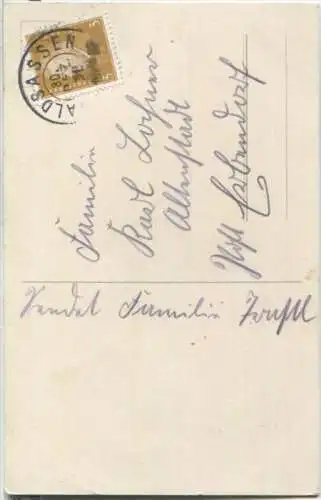 ALDSASSEN
30.
Familie
Karl Lohner
Altenstadt
Post Erbendorf
Sendet Familie